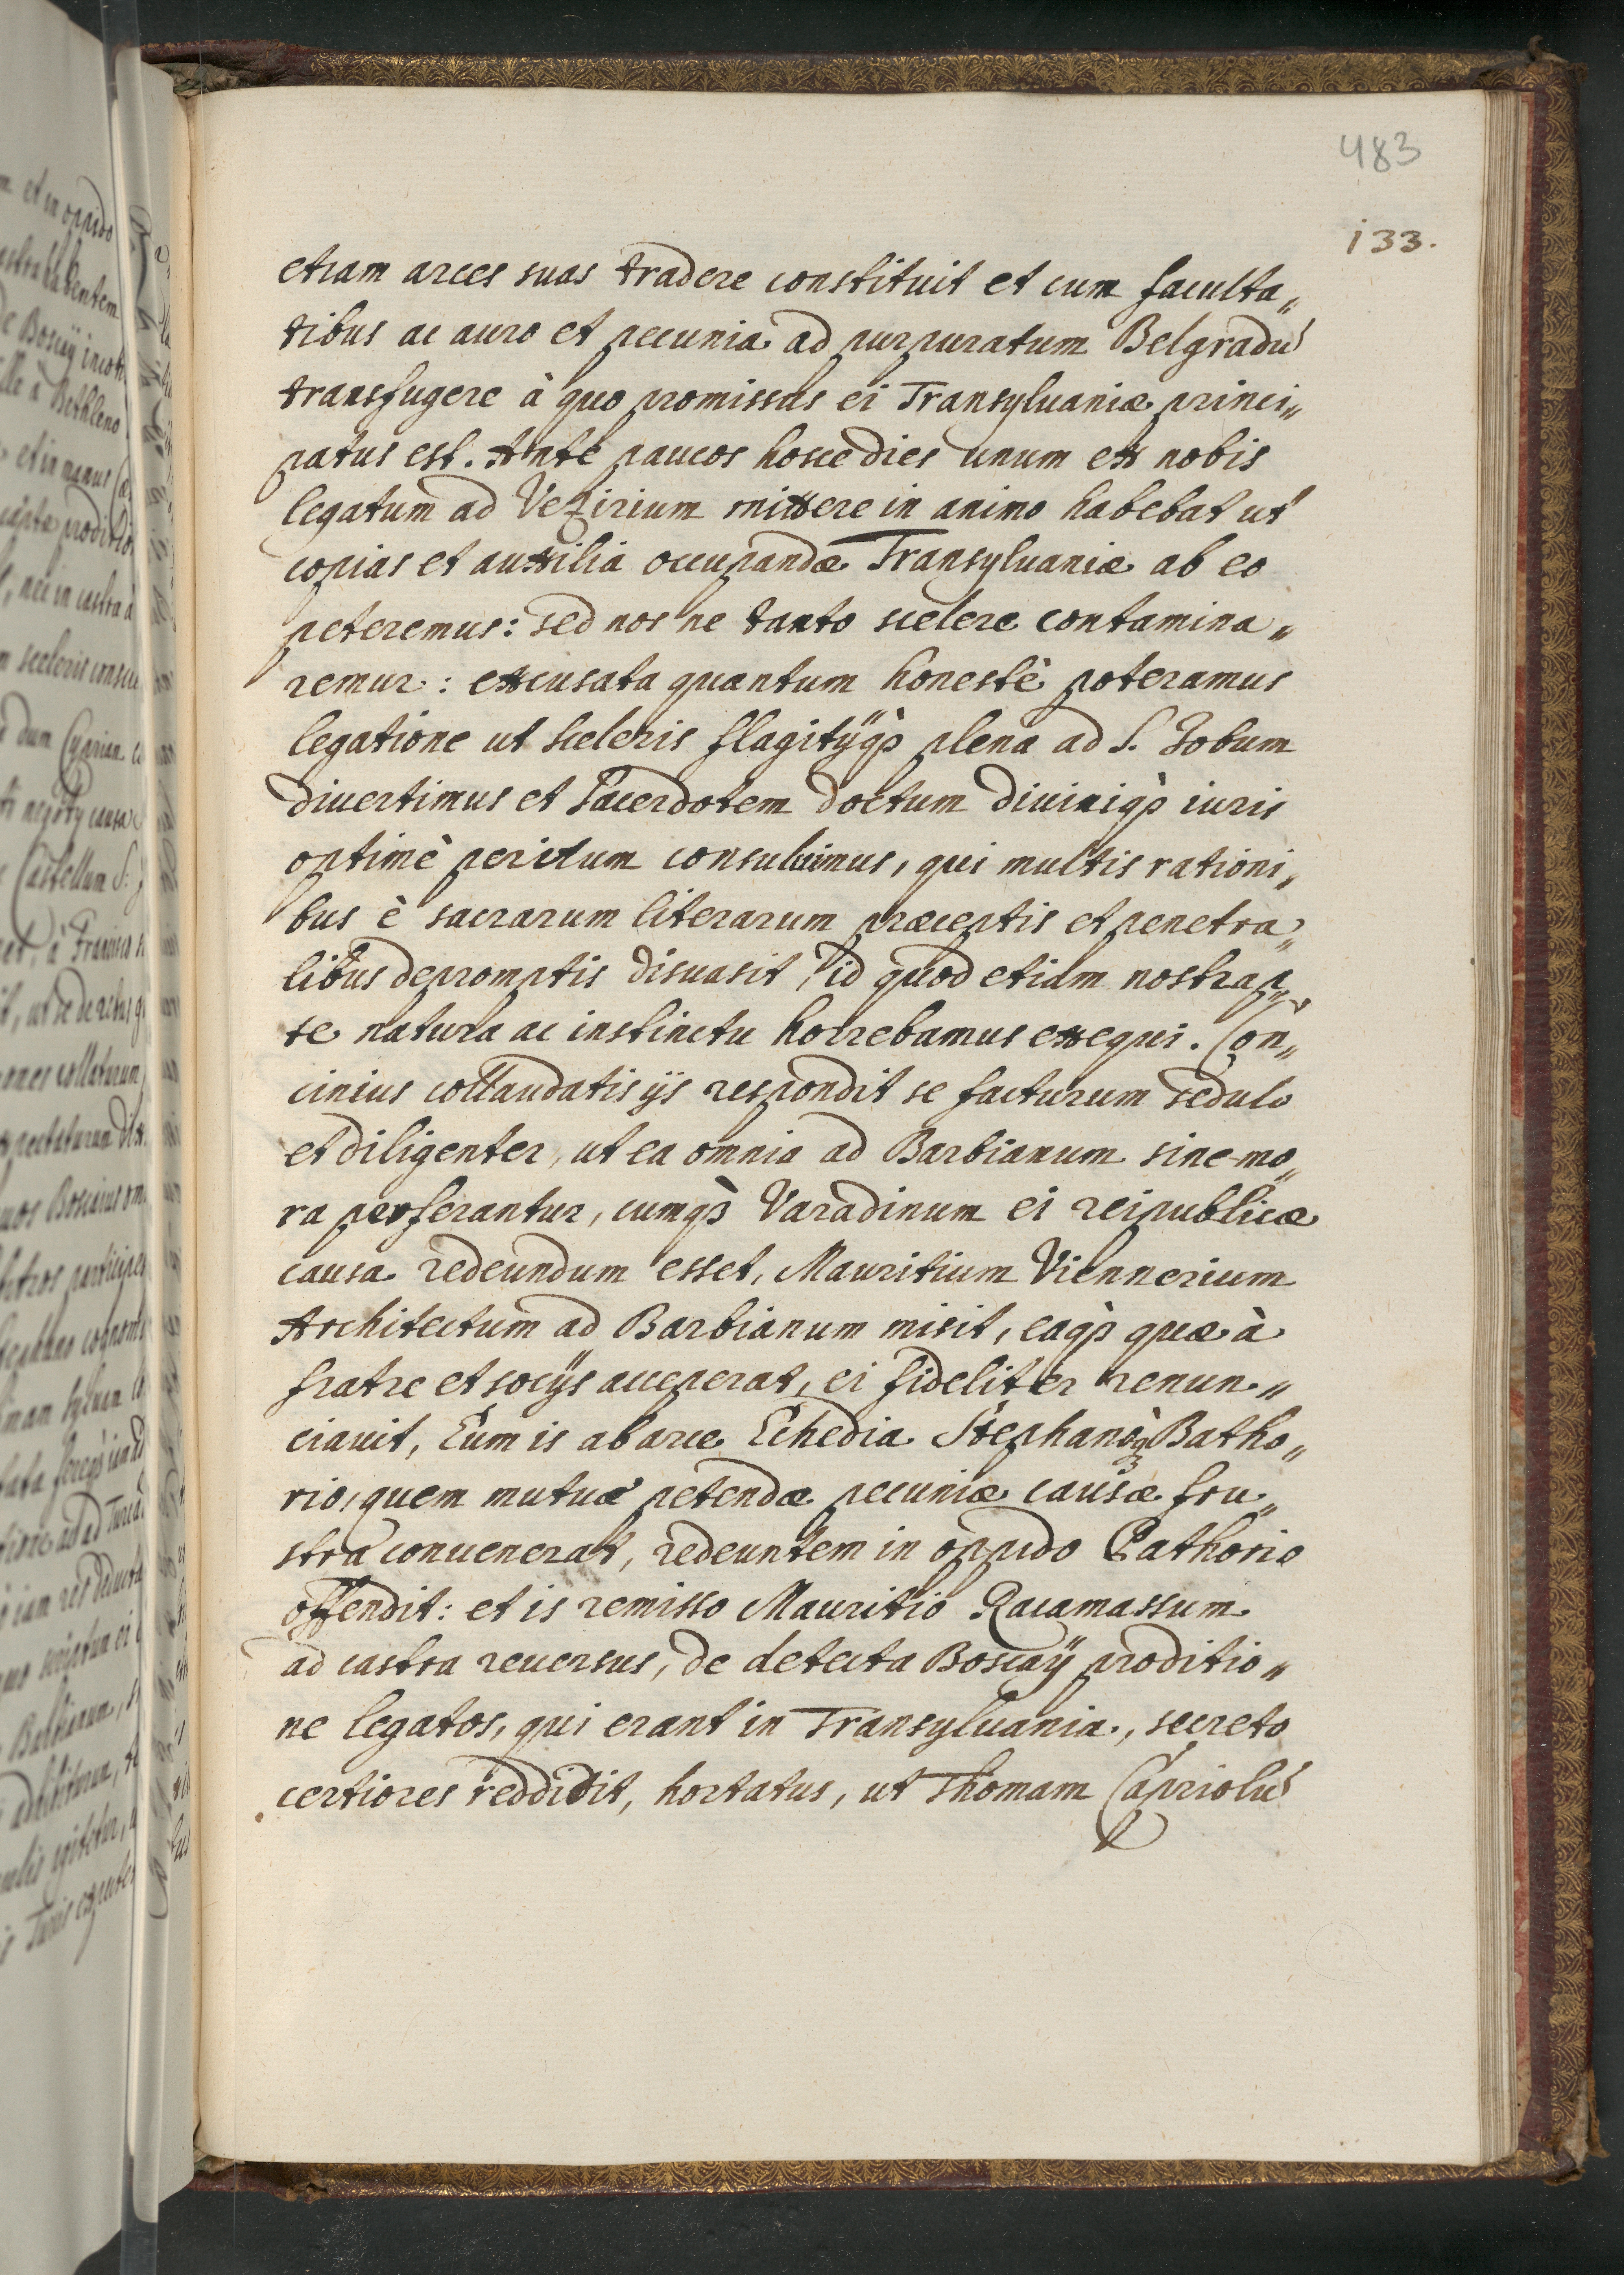 483
133.
etiam arces suas tradere constituit et cum faculta„
tibus ac auro et pecunia ad purpuratum Belgradū
transfugere à quo promissus ei Transyluaniæ princi„
patus est. Ante paucos hosce dies unum ex nobis
legatum ad Vezirium mittere in animo habebat ut
copias et auxilia occupandæ Transyluaniæ ab eo
peteremus: sed nos ne tanto scelere contamina„
remur: excusata quantum honestè poteramus
legatione ut sceleris flagitÿq̀ꝫ plena ad S. Iobum
divertimus et Sacerdotem doctum diuiniq̀ꝫ iuris
optimè peritum consuluimus, qui multis rationi„
bus è sacrarum literarum præceptis et penetra„
libus depromptis disuasit, id quod etiam nostrap„
te natura ac instinctu horrebamus exequi. Con„
cinius collaudatis ijs respondit se facturum sedulo
et diligenter, ut ea omnia ad Barbianum sine mo„
ra perferantur, cumq̀ꝫ Varadinum ei reipublicæ
causa redeundum esset, Mauritium Viennerium
Architectum ad Barbianum misit, eaq̀ꝫ quæ à
fratre et socÿs acceperat, ei fideliter renun„
ciauit, Eum is ab arce Echedia Stephanoq̀ꝫ Batho„
rio, quem mutuæ petendæ pecuniæ causæ fru„
stra conuenerat, redeuntem in oppido Bathorio
offendit: et is remisso Mauritio Racamassum
ad castra reuersus, de detecta Boscaÿ proditio„
ne legatos, qui erant in Transyluania, secreto
certiores reddidit, hortatus, ut Thomam Capriolū